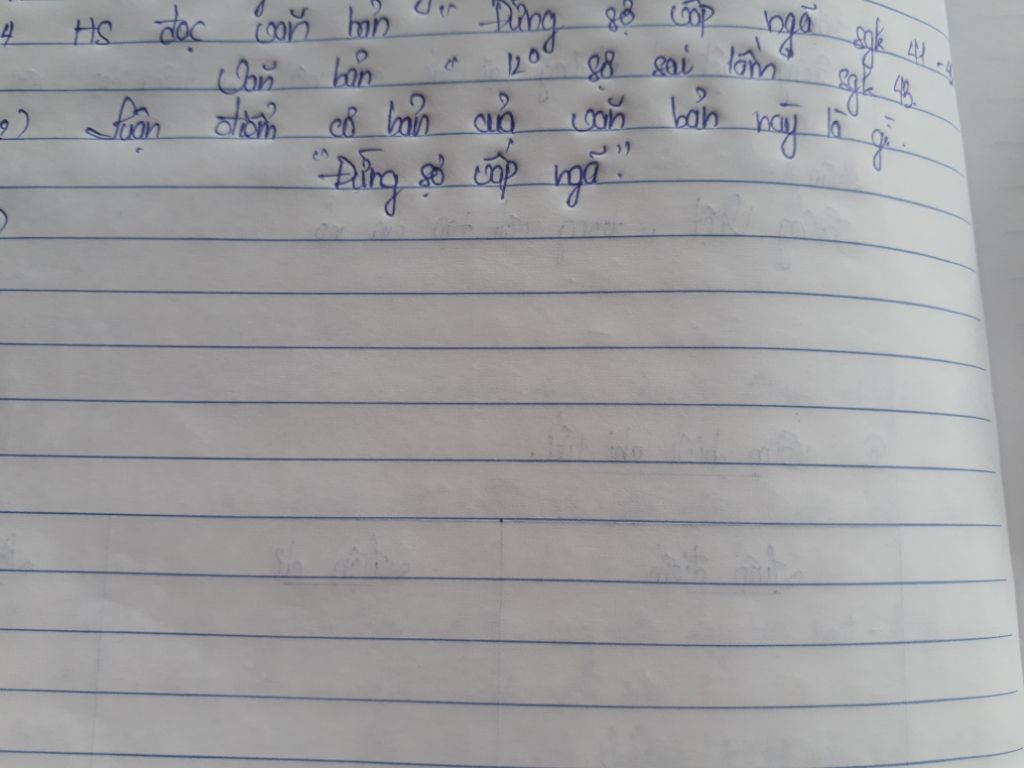 4 HS đọc văn bản " Đừng sợ vấp ngã sgk 41 -
Văn bản " 12º sợ sai lầm sgk 43.
) Luận điểm cơ bản của văn bản này là gì.
"Đừng sợ vấp ngã."
)